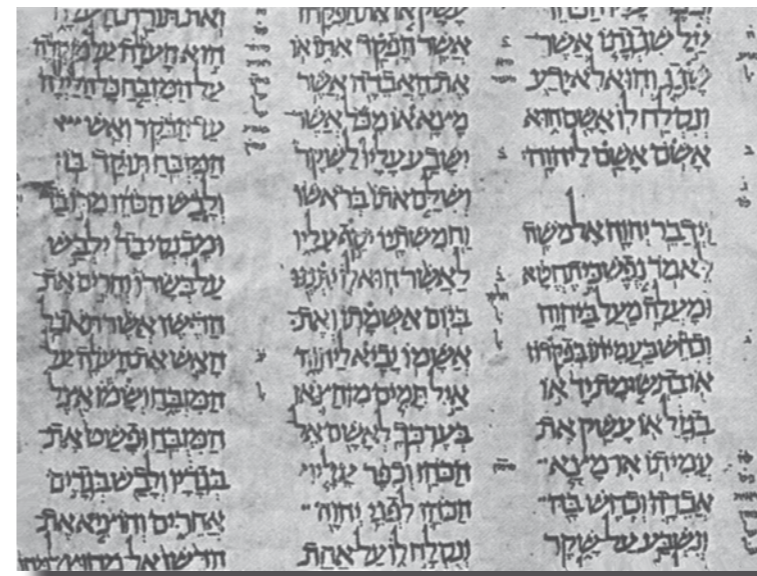 עַל שִׁגְגָתוֹ אֲשֶׁר
שָׁגָג וְהוּא לֹא יָדַע
וְנִסְלַח לוֹ אָשָׁם הוּא
אָשֹׁם אָשַׁם לַיהוָה׃
וַיְדַבֵּר יְהוָה אֶל מֹשֶׁה
לֵּאמֹר נֶפֶשׁ כִּי תֶחֱטָא
וּמָעֲלָה מַעַל בַּיהוָה
וְכִחֵשׁ בַּעֲמִיתוֹ בְּפִקָּדוֹן
אוֹ בִתְשׂוּמֶת יָד אוֹ
בְגָזֵל אוֹ עָשַׁק אֶת
עֲמִיתוֹ׃ אוֹ מָצָא
אֲבֵדָה וְכִחֶשׁ בָּהּ
וְנִשְׁבַּע עַל שָׁקֶר
עָשָׁק אוֹ אֶת הַפִּקָּדוֹן
אֲשֶׁר הָפְקַד אִתּוֹ אוֹ
אֶת הָאֲבֵדָה אֲשֶׁר
מָצָא׃ אוֹ מִכֹּל אֲשֶׁר
יִשָּׁבַע עָלָיו לַשֶּׁקֶר
וְשִׁלַּם אֹתוֹ בְּרֹאשׁוֹ
וַחֲמִשִׁתָיו יֹסֵף עָלָיו
לַאֲשֶׁר הוּא לוֹ יִתְּנֶנּוּ
בְּיוֹם אַשְׁמָתוֹ׃ וְאֶת
אֲשָׁמוֹ יָבִיא לַיהוָה
אַיִל תָּמִים מִן הַצֹּאן
בְּעֶרְכְּךָ לְאָשָׁם אֶל
הַכֹּהֵן׃ וְכִפֶּר עָלָיו
הַכֹּהֵן לִפְנֵי יְהוָה
וְנִסְלַח לוֹ עַל אַחַת
זֹאת תּוֹרַת הָעֹלָה
הִוא הָעֹלָה עַל מוֹקְדָה
עַל הַמִּזְבֵּחַ כָּל הַלַּיְלָה
עַד הַבֹּקֶר וְאֵשׁ
הַמִּזְבֵּחַ תּוּקַד בּוֹ׃
וְלָבַשׁ הַכֹּהֵן מִדּוֹ בַד
וּמִכְנְסֵי בַד יִלְבַּשׁ
עַל בְּשָׂרוֹ וְהֵרִים אֶת
הַדֶּשֶׁן אֲשֶׁר תֹּאכַל
הָאֵשׁ אֶת הָעֹלָה עַל
הַמִּזְבֵּחַ וְשָׂמוֹ אֵצֶל
הַמִּזְבֵּחַ׃ וּפָשַׁט אֶת
בְּגָדָיו וְלָבַשׁ בְּגָדִים
אֲחֵרִים וְהוֹצִיא אֶת
הַדֶּשֶׁן אֶל מִחוּץ לַמַּחֲנֶה